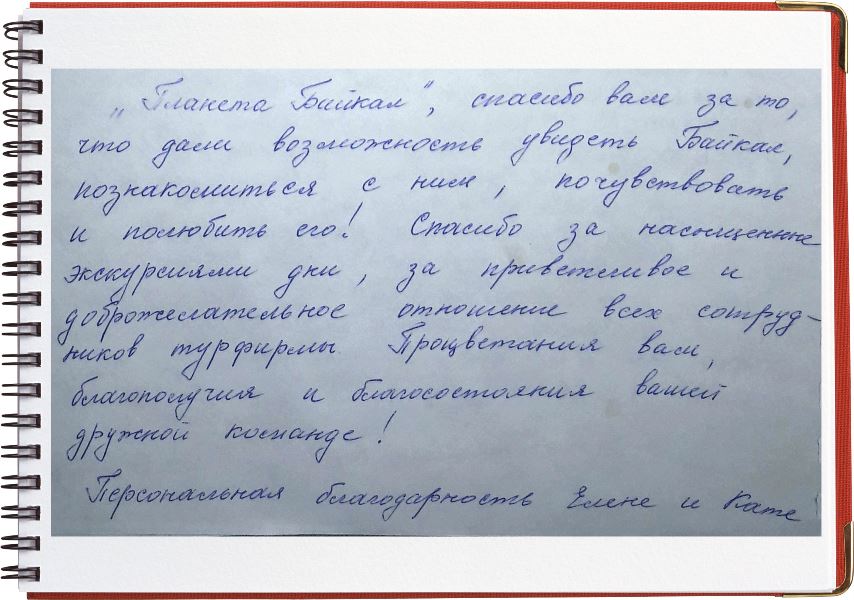 „Планета Байкал", спасибо вам за то,
что дали возможность увидеть Байкал,
познакомиться с ним, почувствовать
и полюбить его! Спасибо за насыщенные
экскурсиями дни, за приветливое и
доброжелательное отношение всех сотруд-
ников турфирмы. Процветания вам,
благополучия и благосостояния вашей
дружной команде!
Персональная благодарность Елене и Кате